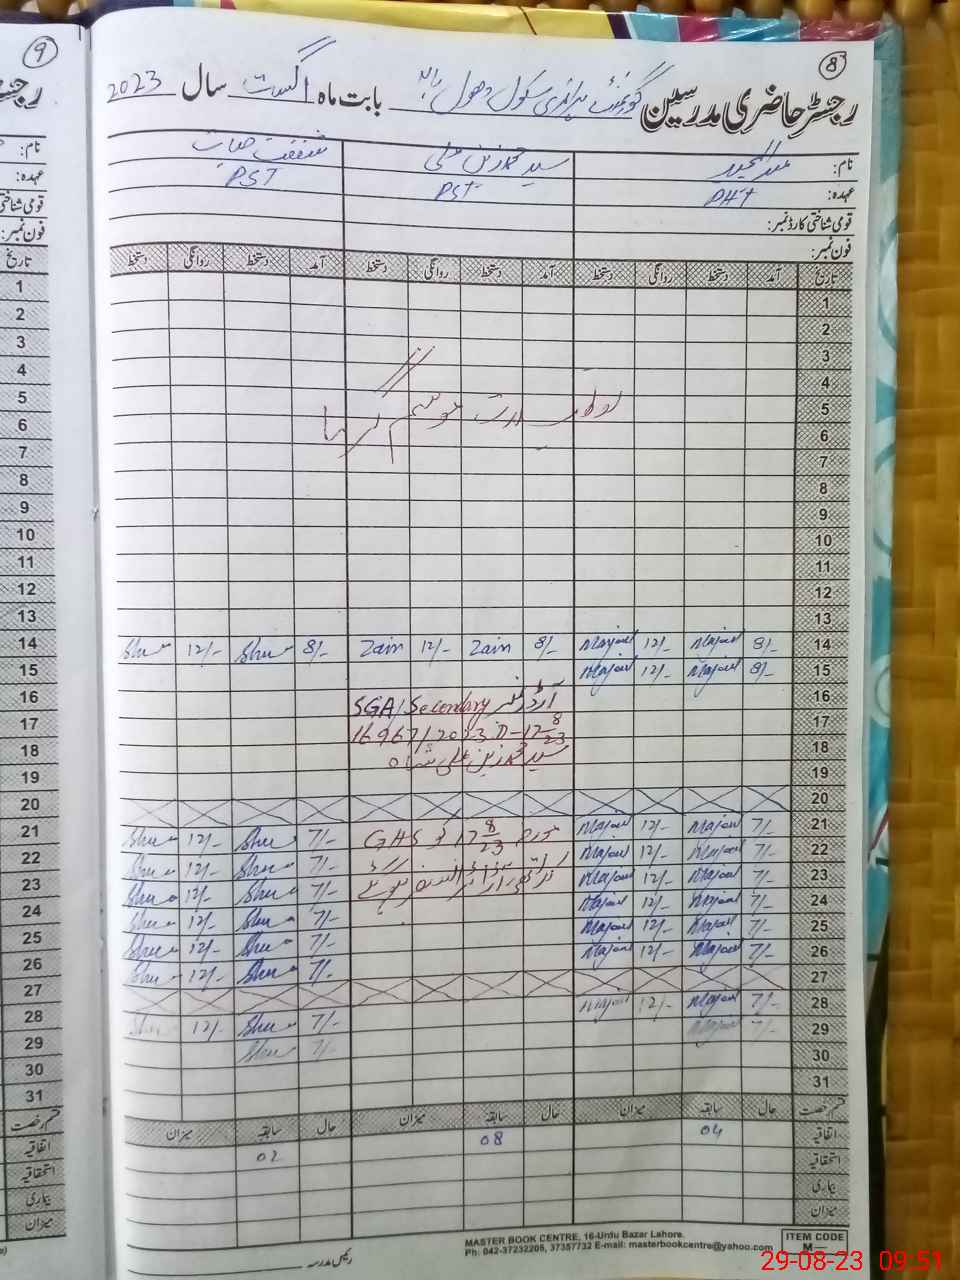 9
8
رجسٹر حاضری مدرسین گورنمنٹ پرائمری سکول دھول بابت ماہ اگست سال 2023
نام: عبدالمجید سید محمد زین علی شفقت حیات
عہدہ: PHT PST PST
قومی شناختی کارڈ نمبر:
فون نمبر:
تاریخ آمد دستخط روانگی دستخط آمد دستخط روانگی دستخط آمد دستخط روانگی دستخط
1
2
3
4
5
6
موسم گرما
7
8
9
10
11
12
13
14 8/- Majeed 12/- Majeed 8/- Zain 12/- Zain 8/- Shu 12/- Shu
15 8/- Majeed 12/- Majeed
16
آرڈر نمبر SGA/Secondary
17
16967/2023 17-8-23
18
سید محمد زین علی شاہ
19
20
21 7/- Majeed 12/- Majeed 7/- Shu 12/- Shu
مورخہ 17-8-23 کو GHS
22 7/- Majeed 12/- Majeed 7/- Shu 12/- Shu
23 7/- Majeed 12/- Majeed 7/- Shu 12/- Shu
24 7/- Majeed 12/- Majeed 7/- Shu 12/- Shu
25 7/- Majeed 12/- Majeed 7/- Shu 12/- Shu
26 7/- Majeed 12/- Majeed 7/- Shu 12/- Shu
27
28 7/- Majeed 12/- Majeed 7/- Shu 12/- Shu
29 7/- Majeed 7/- Shu
30
31
قسم رخصت حال سابقہ میزان حال سابقہ میزان حال سابقہ میزان
اتفاقیہ 04 08 02
استحقاقیہ
بیماری
میزان
رئیس مدرسہ
MASTER BOOK CENTRE, 16-Urdu Bazar Lahore.
Ph: 042-37232206, 37357732 E-mail: masterbookcentre@yahoo.com
ITEM CODE
M—
29-08-23 09:51
رجسٹر
نام:
عہدہ:
قومی شناختی
فون نمبر:
تاریخ
1
2
3
4
5
6
7
8
9
10
11
12
13
14
15
16
17
18
19
20
21
22
23
24
25
26
27
28
29
30
31
قسم رخصت
اتفاقیہ
استحقاقیہ
بیماری
میزان